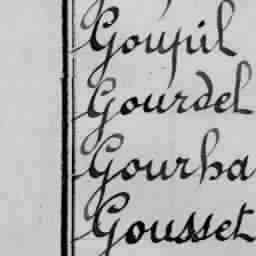 Goupil
Gourdel
Gourha
Gousset